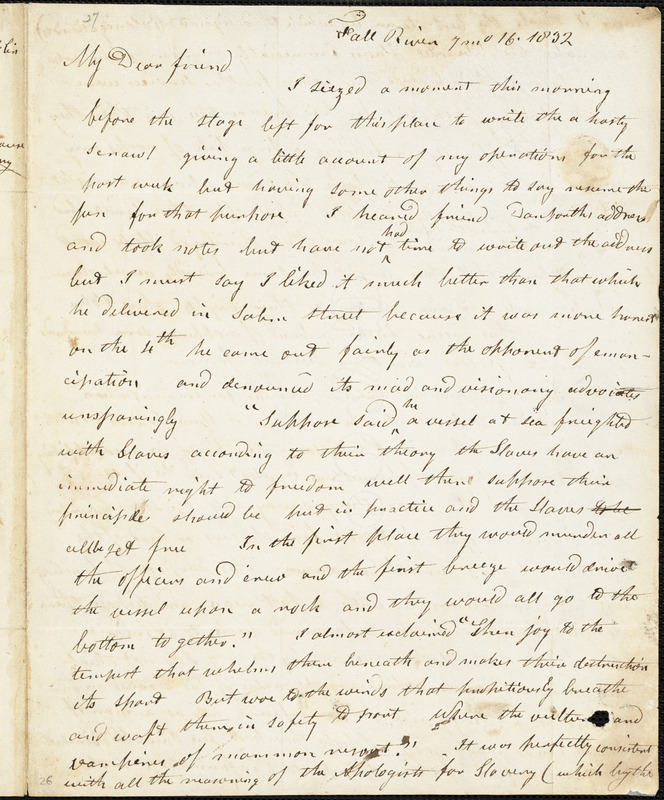 27
Fall River 7 mo 16. 1832
My Dear friend
I seized a moment this morning
before the stage left for this place to write the a hasty
scrawl giving a little account of my operations for the
past week but having some other things to say resume the
pen for that purpose I heared friend Danforths address
and took notes but have not had time to write out the address
but I must say I liked it much better than that which
he delivered in Salem Street because it was more honest
on the 4th he came out fairly as the opponent of eman-
cipation and denounced its mad and visionary advocates
unsparingly "Suppose said he a vessel at sea freighted
with Slaves according to their theory the Slaves have an
immediate right to freedom well then suppose their
principle should be put in practice and the Slaves to be
all set free In the first place they would murder all
the officers and crew and the first breeze would drive
the vessel upon a rock and they would all go to the
bottom together." I almost exclaimed "Then joy to the
tempest that whelms them beneath and makes their destruction
its sport But woe to the winds that propitiously breathe
and waft them in safety to port where the vultures and
vampires of mammon resort?" It was perfectly consistent
with all the reasoning of the Apologists for Slavery (which by the
26